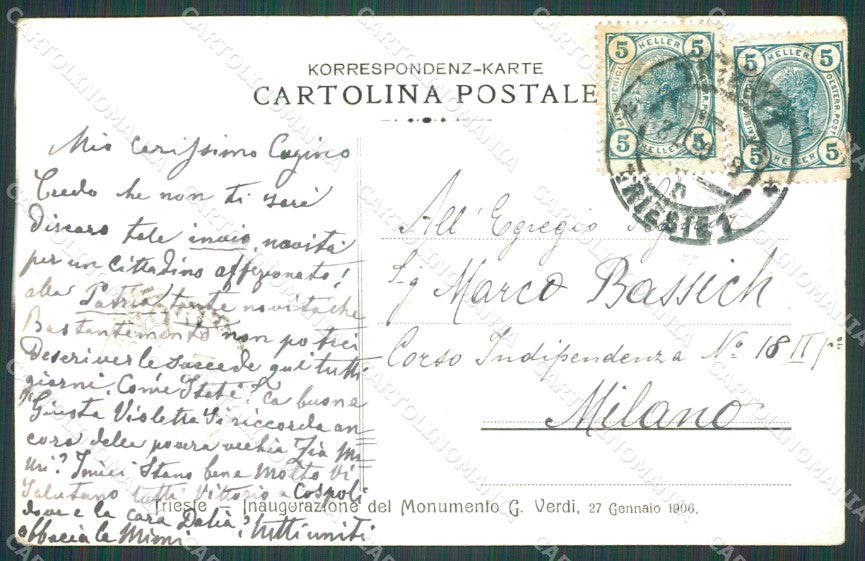 KORRESPONDENZ-KARTE
CARTOLINA POSTALE
5 5
HELLER
5 5
HELLER
5 5
HELLER
OESTERR. POST
5 5
HELLER
TRIESTE 1
Mio carissimo Cugino
Credo che non ti sarà
discaro tale invio, novità
per un cittadino affezionato!
alla Patria tante novità che
Bastantemente non potrei
descriverle succede qui tutti
giorni. Come State? La buona
Giusta Violetta Si riccorda an
cora della povera vecchia Zia
? I miei Stano bene Molto Vi
Salutano tutti Vittorio a Cospoli
dove e la cara Dalia? Tutti uniti
abbracia la Mimi
All' Egregio
Sig Marco Bassich
Corso Indipendenza No 18 II
Milano
Trieste Inaugurazione del Monumento G. Verdi, 27 Gennaio 1906.
CARTOLINOMANIA